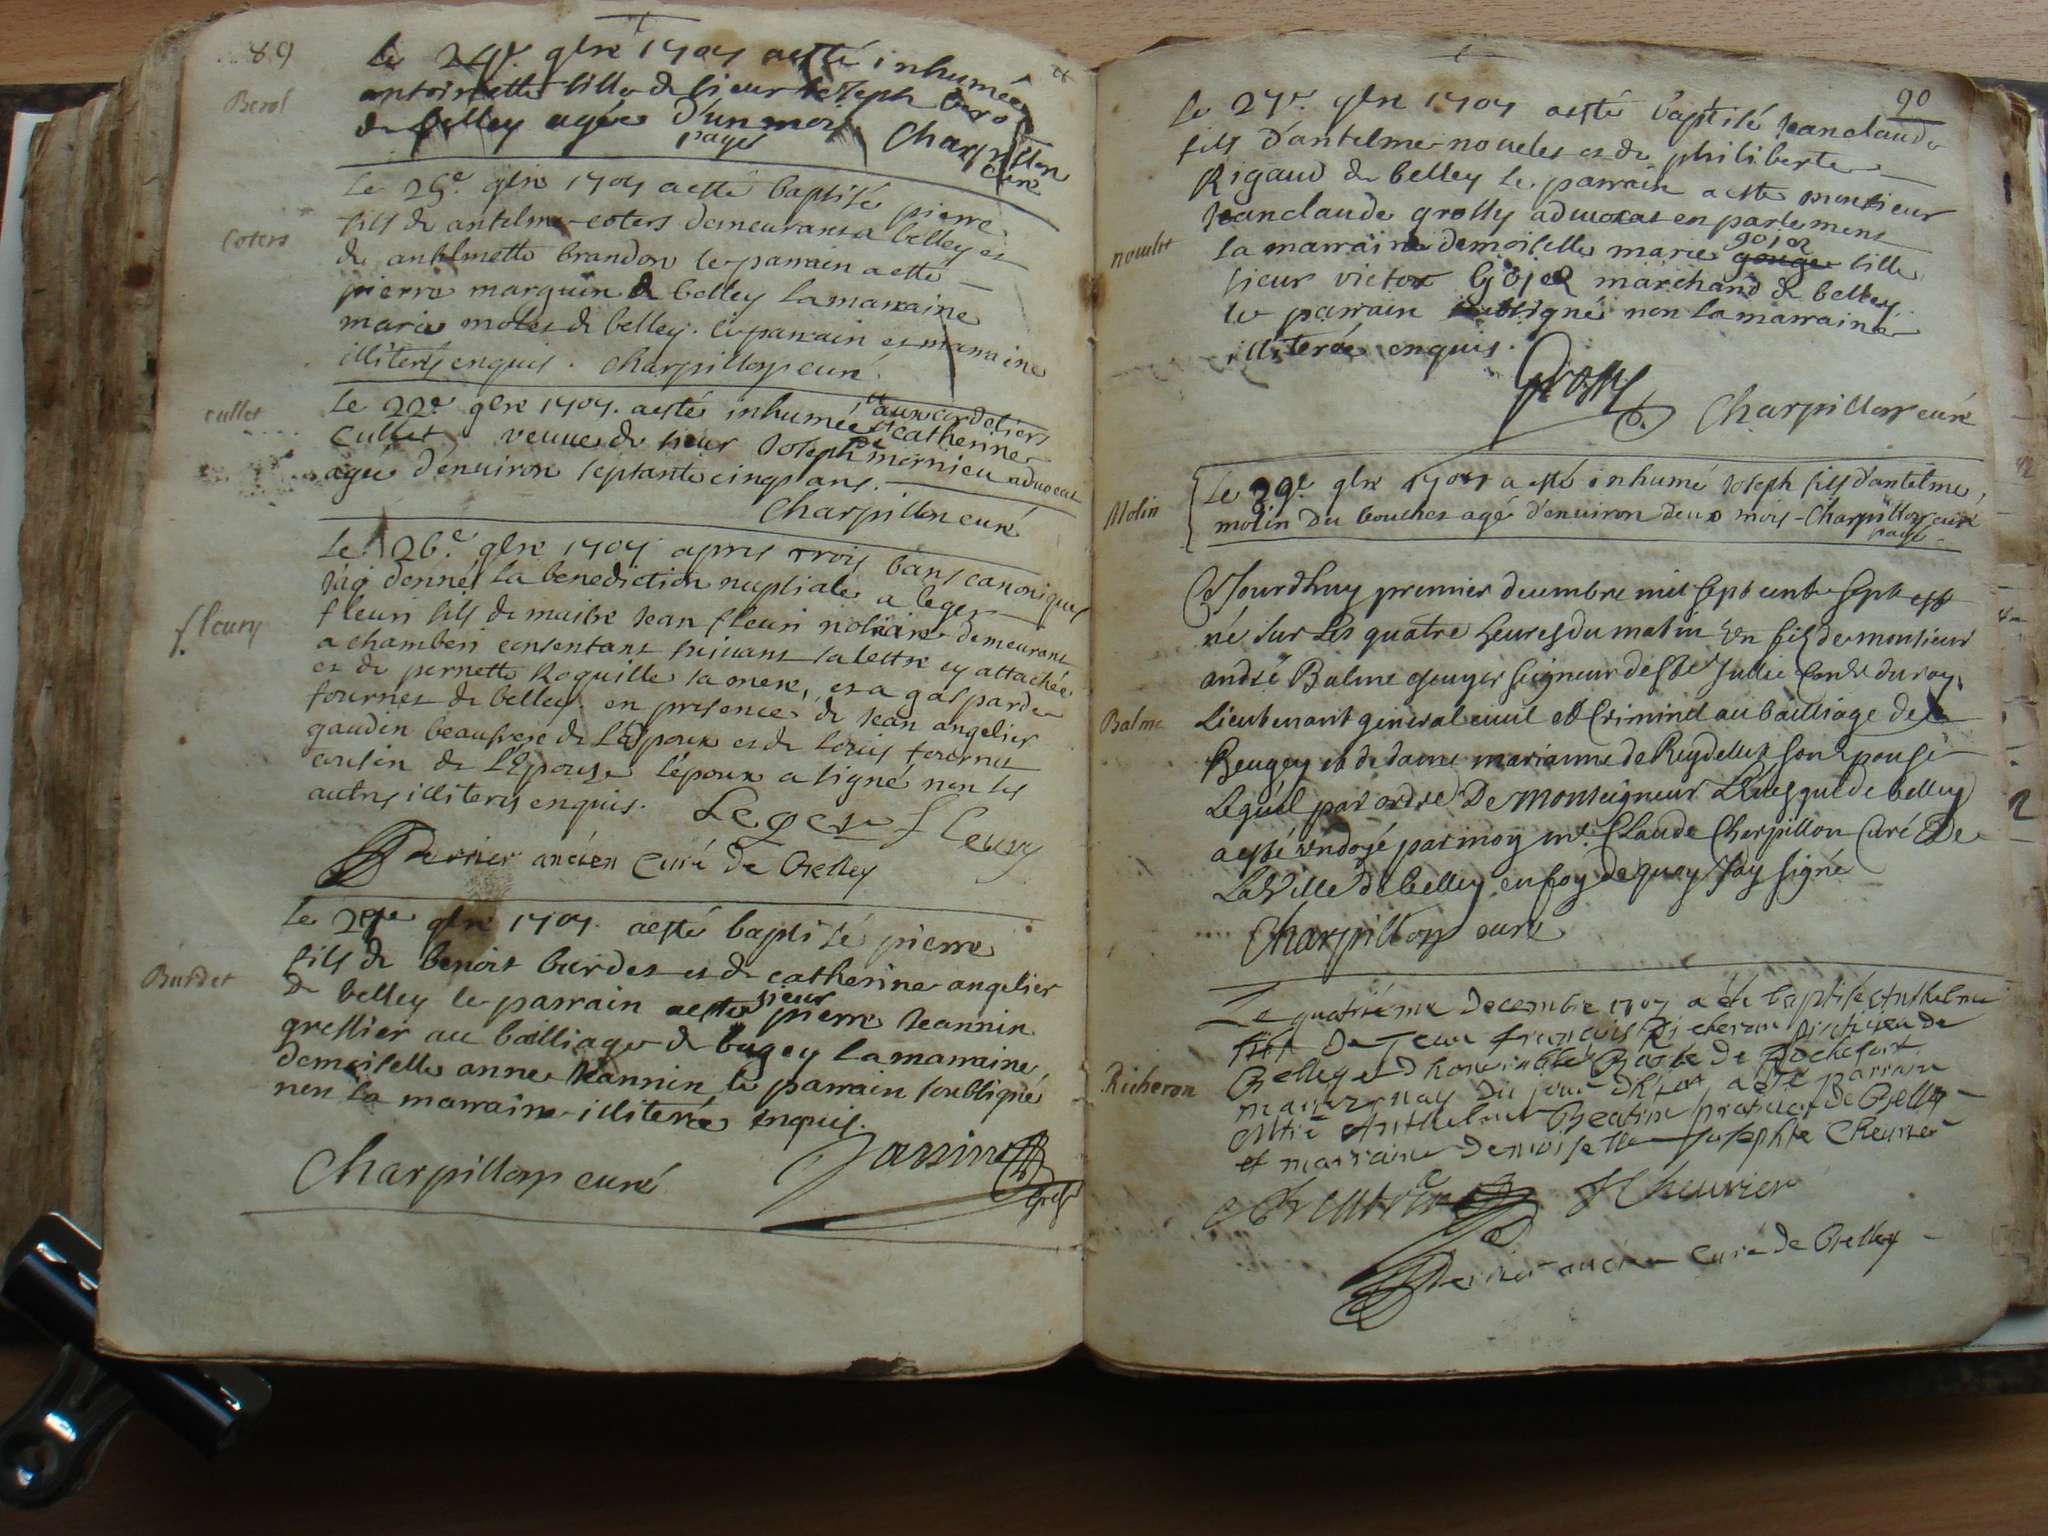 89
Le 24e. 9bre 1707 aesté inhumée
antoinette fille de sieur Joseph
de belley agée d'un mois Charpillon
payé curé
Berol
Le 25e. 9bre 1707 aesté baptisé pierre
Coters
fils de antelme coters demeurant a belley et
de antelmette brandon le parrain aesté
pierre marquin de belley la marraine
marie molet de belley. le parrain et marraine
illiterés enquis. Charpillon curé
cullet
Le 22e 9bre 1707. aesté inhumée aux cordeliers
Cullet veuve de sieur Joseph mornieu advocat
catherine
agée d'environ septante cinq ans.
Charpillon curé
Le 26.e 9bre 1707 apres trois bans canoniques
j'ay donné la benediction nuptiale a leger
fleury
fleuri fils de maitre Jean fleuri notaire demeurant
a chamberi consentant suivant sa lettre cy attachée
et de pernette Roguille sa mere, et a gasparde
fournet de belley en presence de Jean angelier
gaudin beaufrere de L'Epoux et de Louis fournet
cousin de L'Epouse l'époux a signé non les
autres illiterés enquis. Leger fleury
Dernier ancien Curé de Belley
Le 27e 9bre 1707. aesté baptisé pierre
Burdet
fils de benoit burdet et de catherine angelier
de belley le parrain aesté sieur pierre Jeannin
greffier au balliage de bugey la marraine
demoiselle anne Jeannin le parrain soubsigné
non la marraine illiterée enquis.
Charpillon curé Jannin
greff
90
Le 27e. 9bre 1707 aesté baptisé Jeanclaude
fils d'antelme novelet et de philiberte
Rigaud de belley le parrain aesté monsieur
Jeanclaude grossy advocat en parlement
novelet
la marraine demoiselle marie gojoz gouge fille
sieur victor Gojoz marchand de belley
le parrain soubsigné non la marraine
illiterée enquis.
Grossy
Charpillon curé
Molin
Le 29e 9bre 1707 a esté inhumé Joseph fils d'antelme
molin du bouchet agé d'environ deux mois Charpillon curé
payé
Cejourdhuy premier decembre mil sept cent sept est
né sur les quatre heures du matin un fils de monsieur
andré Balme escuyer seigneur de Ste Julie Conser du roy,
Balme
Lieutenant general civil et Criminel au bailliage de
Beugey et de dame marianne de Reydellet son epouse
Lequel par ordre De monseigneur L'Evesque de belley
a esté ondoyé par moy mre. Claude Charpillon Curé De
La Ville de belley en foy de quoy j'ay signé
Charpillon curé
Le quatrième decembre 1707 a été baptisé Anthelme
fils De Jean françois Richeron praticien de
Richeron
Belley et d'honnorable de Rochefort
mariez nay du jour d'hier, a été parrain
Anthelme Beatrix procureur de Belley
et marraine demoiselle Josephte Chevrier
Beatrix J Chevrier
Dernier ancien Curé de Belley